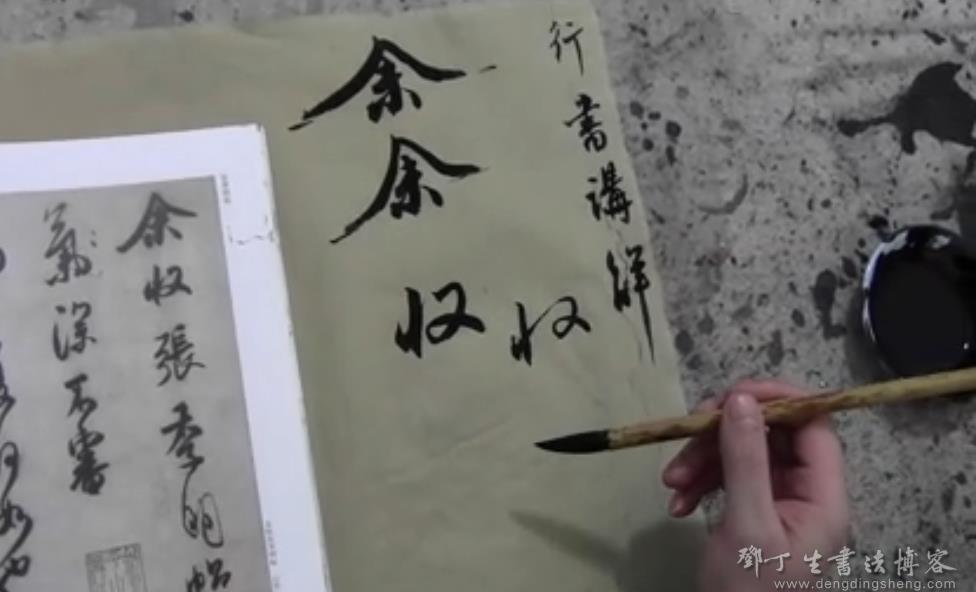 行書講解
余余收
收
余收張季明帖
氣深不審
何如也
鄧丁生書法博客
www.dengdingsheng.com